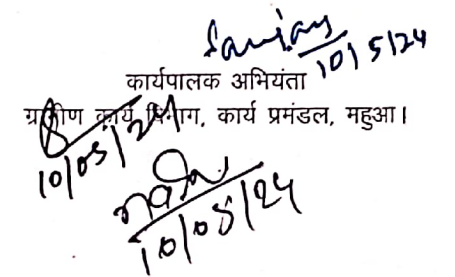 Sanjay
10/5/24
कार्यपालक अभियंता
ग्रामीण कार्य विभाग, कार्य प्रमंडल, महुआ।
10/05/24
10/05/24